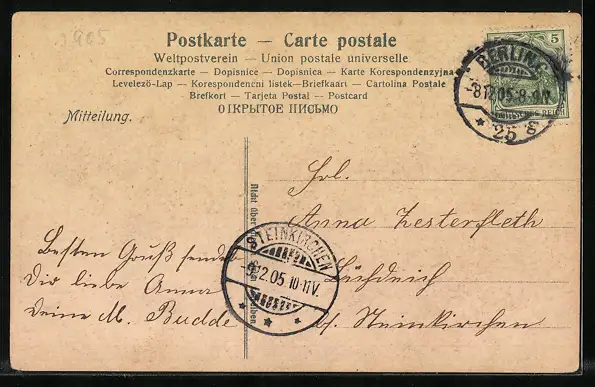 1905
Postkarte — Carte postale
Weltpostverein — Union postale universelle
Correspondenzkarte — Dopisnice — Dopisnica — Karte Korespondenzyjna
Levelező-Lap — Korespondencni listek—Briefkaart — Cartolina Postale
Brefkort — Tarjeta Postal — Postcard
ОТКРЫТОЕ ПИСЬМО
Mitteilung.
5
REICH
BERLIN
25
Frl.
Anna Zesterfleth
b/ Steinkirchen
Besten Gruß sendet
Dir liebe Anna
Deine M. Budde
STEINKIRCHEN
12.05 10-11V.
Nicht über